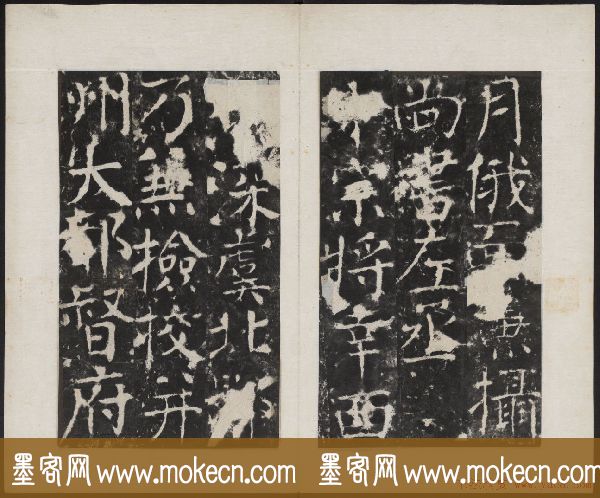 月俄而兼攝
尚書左丞
宗將幸西
深虞北鄙
乃兼撿挍并
州大都督府
墨客网 www.mokecn.com
墨客网 www.mokecn.com